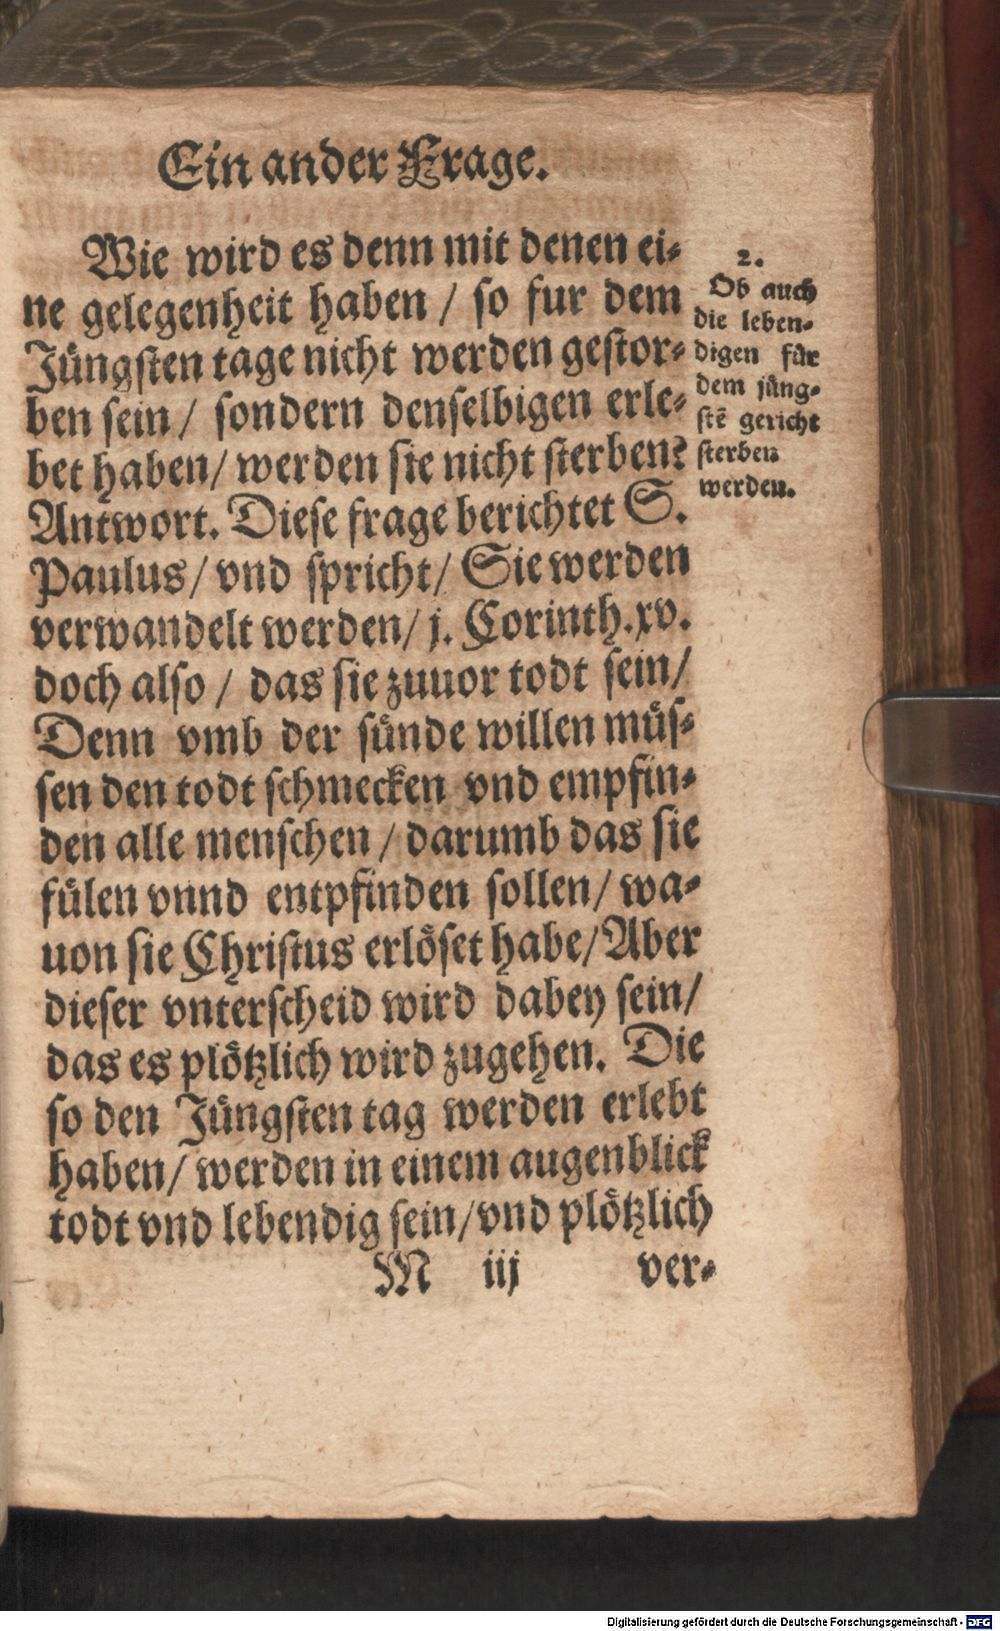 Ein ander Frage.
Wie wird es denn mit denen ei-
ne gelegenheit haben / so fur dem
Jüngsten tage nicht werden gestor-
ben sein / sondern denselbigen erle-
bet haben / werden sie nicht sterben?
Antwort. Diese frage berichtet S.
Paulus / vnd spricht / Sie werden
verwandelt werden / j. Corinth. xv.
doch also / das sie zuuor todt sein /
Denn vmb der sünde willen müs-
sen den todt schmecken vnd empfin-
den alle menschen / darumb das sie
fülen vnnd entpfinden sollen / wa-
uon sie Christus erlöset habe / Aber
dieser vnterscheid wird dabey sein /
das es plötzlich wird zugehen. Die
so den Jüngsten tag werden erlebt
haben / werden in einem augenblick
todt vnd lebendig sein / vnd plötzlich
M iij ver-
2.
Ob auch
die leben-
digen für
dem jüng-
stẽ gericht
sterben
werden.
Digitalisierung gefördert durch die Deutsche Forschungsgemeinschaft - DFG